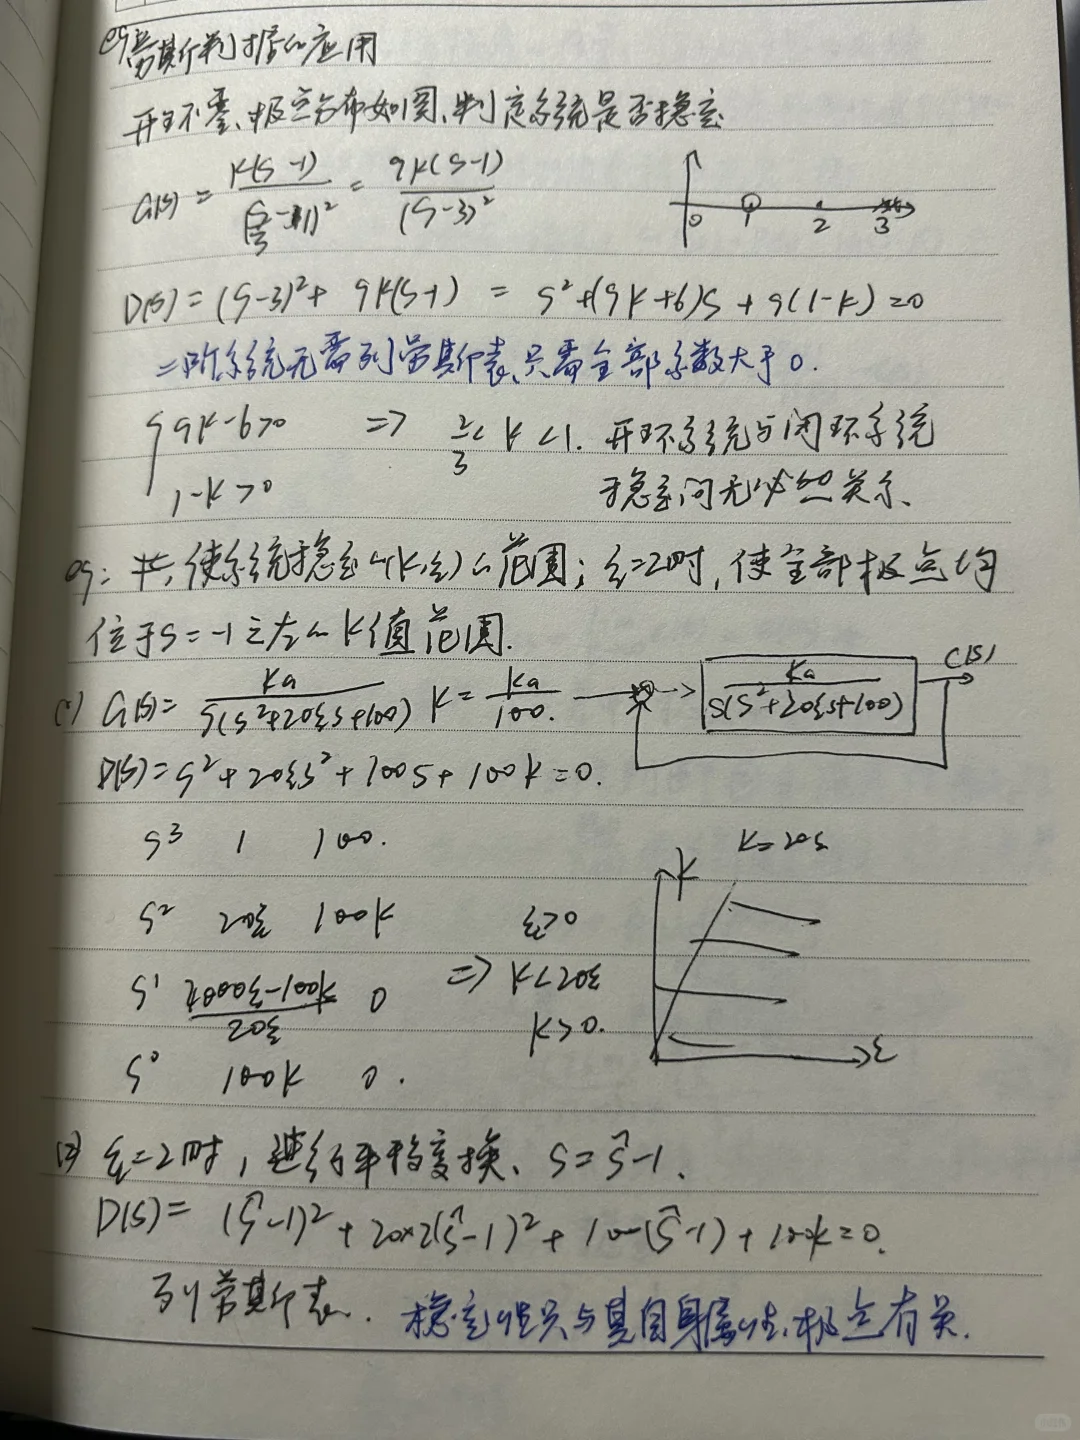 eg 劳斯判据的应用
开环零、极点分布如图,判定系统是否稳定
G(s) = K(s-1) / (s/3 -1)² = 9K(s-1) / (s-3)²
0 1 2 3
D(s) = (s-3)² + 9K(s-1) = s² + (9K+6)s + 9(1-K) = 0
二阶系统无需列劳斯表,只需全部系数大于0.
{ 9K-6>0 => 2/3 < K < 1. 开环系统与闭环系统
1-K>0 稳定间无必然关系、
eg: 求,使系统稳定的(K,ξ)的范围; ξ=2时,使全部极点均
位于s=-1之左的K值范围.
(1) G(s) = Ka / s(s²+20ξs+100) K = Ka / 100.
Ka / s(s²+20ξs+100) C(s)
D(s) = s² + 20ξs² + 100s + 100K = 0.
s³ 1 100.
K=20ξ
K
s² 20ξ 100K ξ>0
s¹ 2000ξ-100K / 20ξ 0 => K<20ξ
K>0.
s⁰ 100K 0.
ξ
(2) ξ=2时,进行平移变换、s=ŝ-1.
D(s) = (ŝ-1)² + 20×2(ŝ-1)² + 100(ŝ-1) + 100K = 0.
列劳斯表. 稳定性只与其自身属性、极点有关.